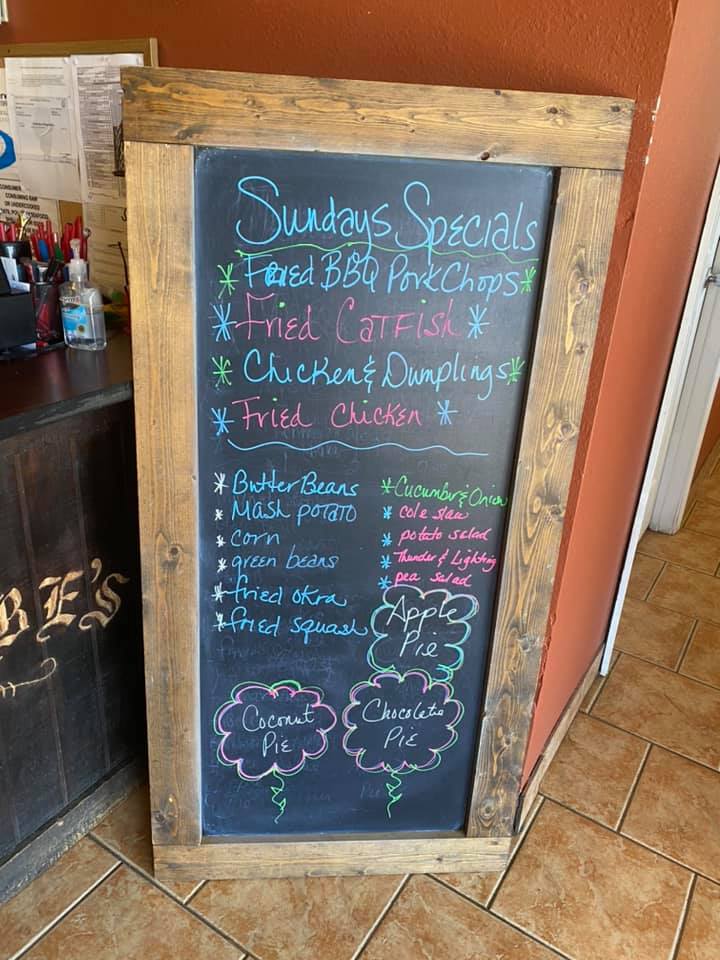 Sundays Specials
* Fried BBQ Pork Chops *
* Fried Catfish *
* Chicken & Dumplings *
* Fried Chicken *
* Butter Beans
* Mash potato
* corn
* green beans
* fried okra
* fried squash
* Cucumber & Onion
* cole slaw
* potato salad
* Thunder & Lighting
* pea salad
Apple
Pie
Coconut
Pie
Chocolate
Pie
BE'S
CONSUMING RAW
OR UNDERCOOKED